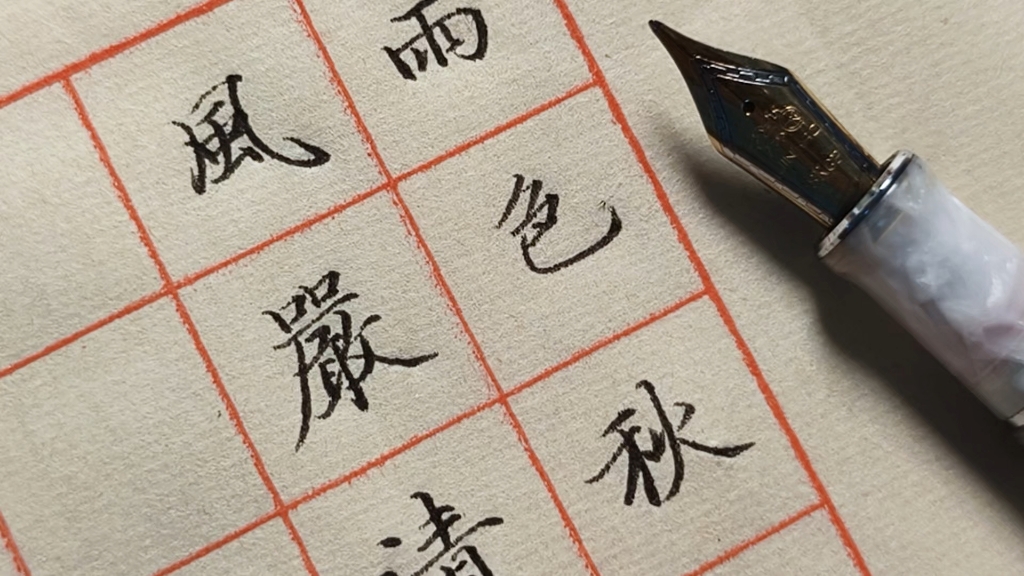 雨色秋
風嚴清